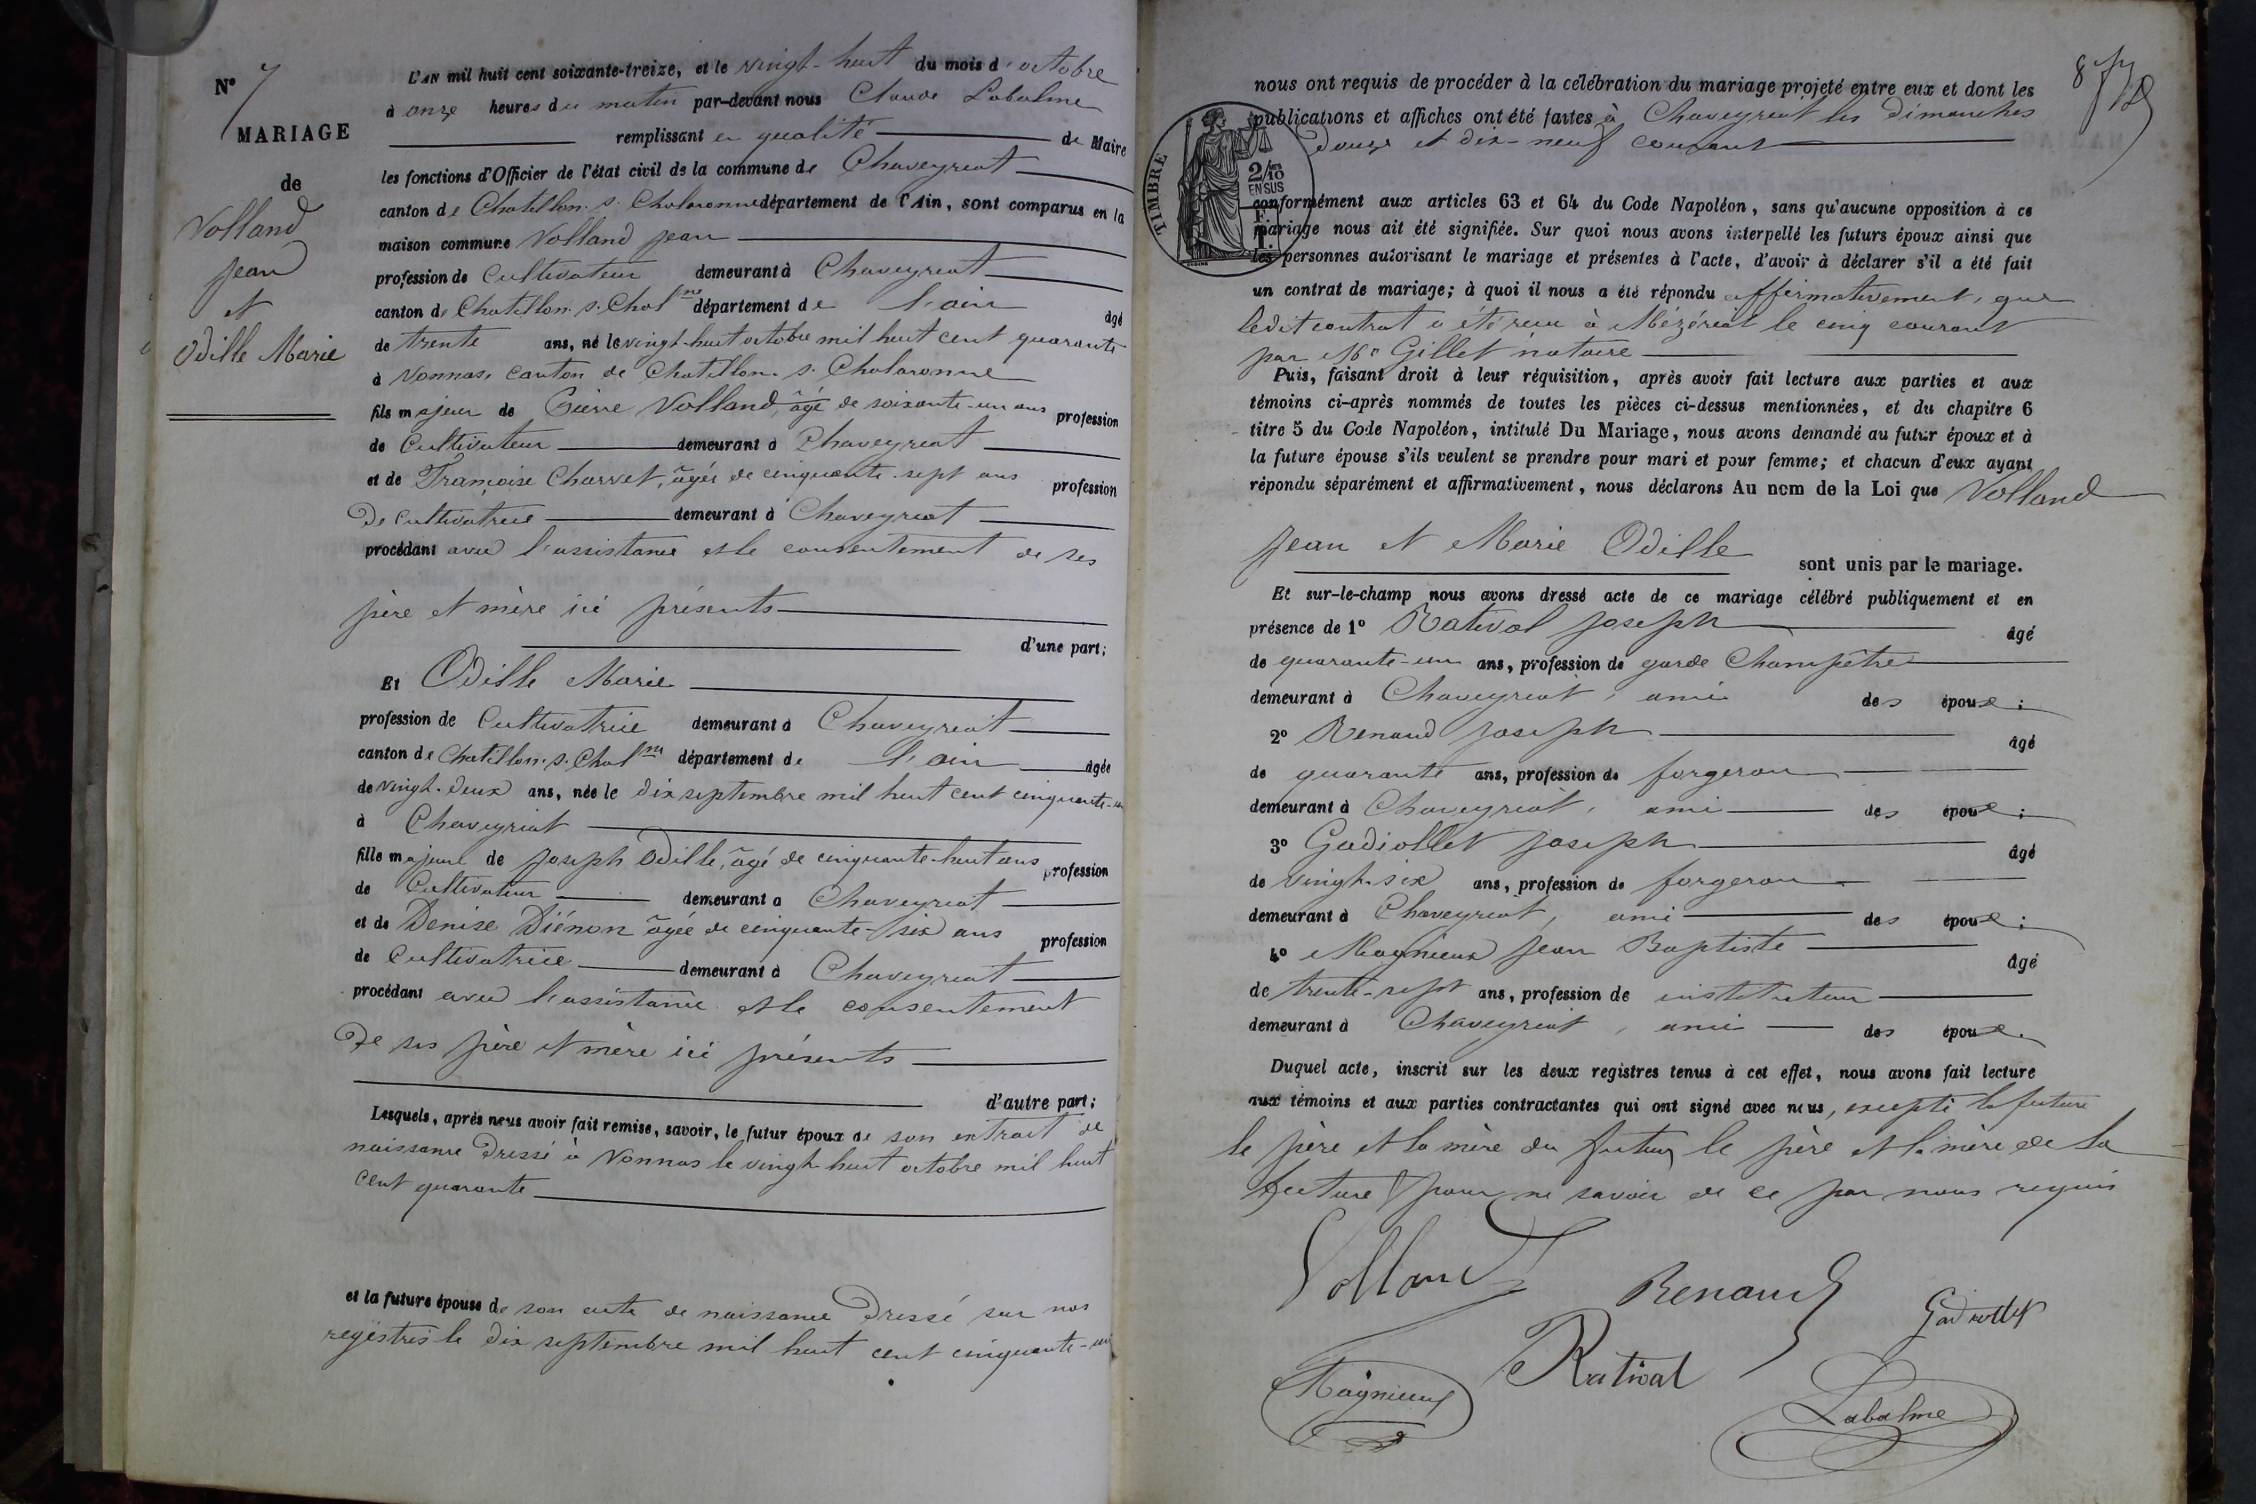 N° 7
MARIAGE
de
Volland
Jean
et
Odille Marie
L'AN mil huit cent soixante-treize, et le vingt-huit du mois d'octobre
à onze heures du matin par-devant nous Claude Labalme
remplissant en qualité de Maire
les fonctions d'Officier de l'état civil de la commune de Chaveyriat
canton de Chatillon s. Chalaronne département de l'Ain, sont comparus en la
maison commune Volland Jean
profession de Cultivateur demeurant à Chaveyriat
canton de Chatillon s. Chalne département de l'ain âgé
de trente ans, né le vingt-huit octobre mil huit cent quarante
à Vonnas, canton de Chatillon s. Chalaronne
fils majeur de Pierre Volland, âgé de soixante-un ans profession
de Cultivateur demeurant à Chaveyriat
et de Françoise Charvet, âgée de cinquante-sept ans profession
de Cultivatrice demeurant à Chaveyriat
procédant avec l'assistance et le consentement de ses
père et mère ici présents
d'une part;
Et Odille Marie
profession de Cultivatrice demeurant à Chaveyriat
canton de Chatillon s. Chalne département de l'ain âgée
de vingt-deux ans, née le dix septembre mil huit cent cinquante-un
à Chaveyriat
fille majeure de Joseph Odille, âgé de cinquante-huit ans profession
de Cultivateur demeurant à Chaveyriat
et de Denise Diénon âgée de cinquante-six ans profession
de Cultivatrice demeurant à Chaveyriat
procédant avec l'assistance et le consentement
de ses père et mère ici présents
d'autre part;
Lesquels, après nous avoir fait remise, savoir, le futur époux de son extrait de
naissance dressé à Vonnas le vingt-huit octobre mil huit
cent quarante
et la future épouse de son acte de naissance dressé sur nos
registres le dix septembre mil huit cent cinquante-un
8
nous ont requis de procéder à la célébration du mariage projeté entre eux et dont les
publications et affiches ont été faites à Chaveyriat les dimanches
douze et dix-neuf courant
TIMBRE
2/10
EN SUS
conformément aux articles 63 et 64 du Code Napoléon, sans qu'aucune opposition à ce
mariage nous ait été signifiée. Sur quoi nous avons interpellé les futurs époux ainsi que
les personnes autorisant le mariage et présentes à l'acte, d'avoir à déclarer s'il a été fait
un contrat de mariage; à quoi il nous a été répondu affirmativement, que
ledit contrat a été reçu à Mézériat le cinq courant
par Me Gillet notaire
Puis, faisant droit à leur réquisition, après avoir fait lecture aux parties et aux
témoins ci-après nommés de toutes les pièces ci-dessus mentionnées, et du chapitre 6
titre 5 du Code Napoléon, intitulé Du Mariage, nous avons demandé au futur époux et à
la future épouse s'ils veulent se prendre pour mari et pour femme; et chacun d'eux ayant
répondu séparément et affirmativement, nous déclarons Au nom de la Loi que Volland
Jean et Marie Odille
sont unis par le mariage.
Et sur-le-champ nous avons dressé acte de ce mariage célébré publiquement et en
présence de 1° Rativol Joseph âgé
de quarante-un ans, profession de garde Champêtre
demeurant à Chaveyriat, ami des époux;
2° Renaud Joseph âgé
de quarante ans, profession de forgeron
demeurant à Chaveyriat, ami des époux;
3° Gadiollet Joseph âgé
de vingt-six ans, profession de forgeron
demeurant à Chaveyriat, ami des époux;
4° Magnieux Jean Baptiste âgé
de trente-sept ans, profession de instituteur
demeurant à Chaveyriat, ami des époux.
Duquel acte, inscrit sur les deux registres tenus à cet effet, nous avons fait lecture
aux témoins et aux parties contractantes qui ont signé avec nous, excepté la future
le père et la mère du futur, le père et la mère de la
future pour ne savoir de ce par nous requis
Volland
Renaud
Gadiollet
Rativol
Magnieux
Labalme